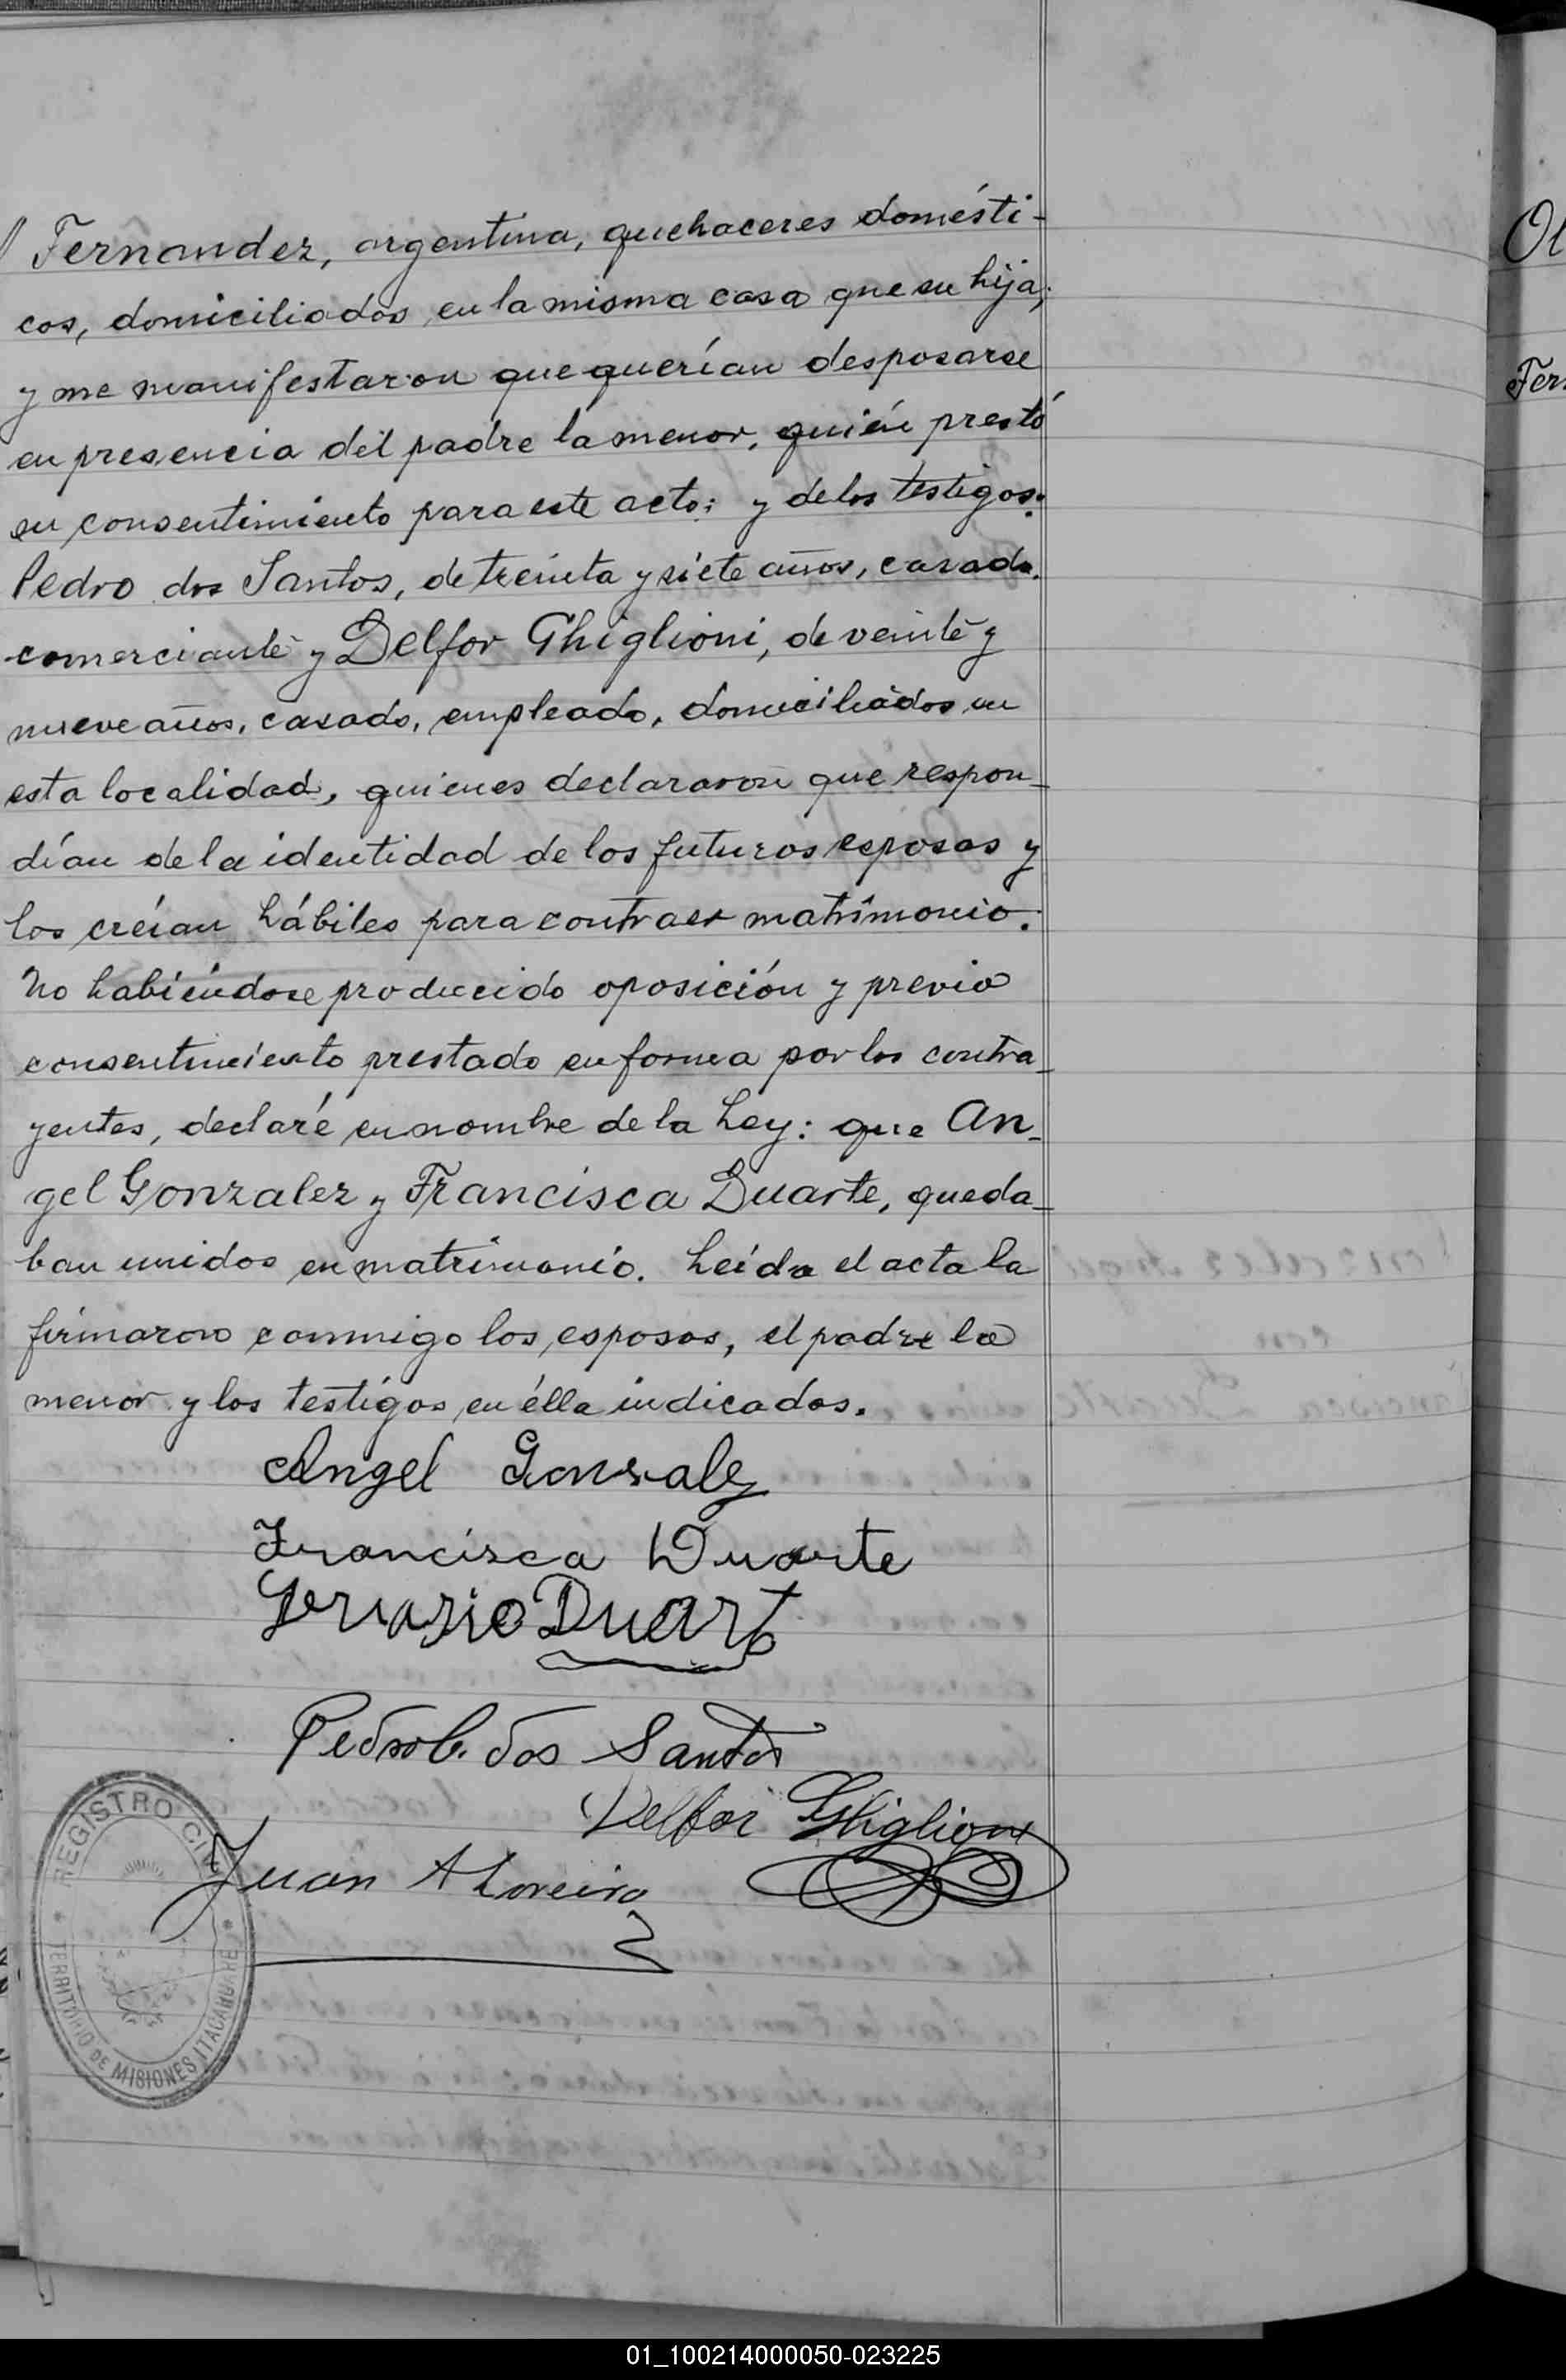 // Fernandez, argentina, quehaceres domésti-
cos, domiciliados en la misma casa que su hija;
y me manifestaron que querían desposarse
en presencia del padre la menor, quién prestó
su consentimiento para este acto; y de los testigos:
Pedro dos Santos, de treinta y siete años, casado,
comerciante y Delfor Ghiglioni, de veinte y
nueve años, casado, empleado, domiciliados en
esta localidad, quienes declararon que respon-
dían de la identidad de los futuros esposos y
los creían hábiles para contraer matrimonio.
No habiéndose producido oposición y previo
consentimiento prestado en forma por los contra-
yentes, declaré en nombre de la Ley: que An-
gel Gonzalez y Francisca Duarte, queda-
ban unidos en matrimonio. Leída el acta la
firmaron conmigo los esposos, el padre la
menor y los testigos en élla indicados.
Angel Gonzalez
Francisca Duarte
Gervasio Duart
Pedro dos Santos
Delfor Ghiglioni
Juan A Loreiro
REGISTRO CIVIL
TERRITORIO DE MISIONES ITACARUARÉ
Ol
Fer
01_100214000050-023225